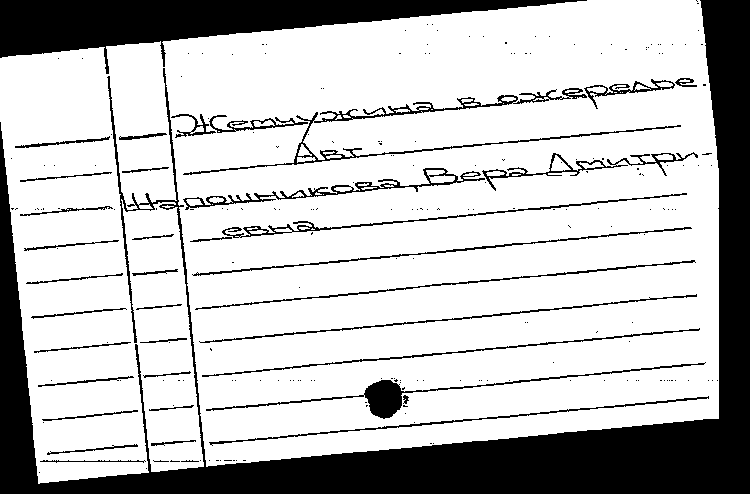 Жемчужина в ожерелье.
Авт
Шапошникова, Вера Дмитри-
евна.